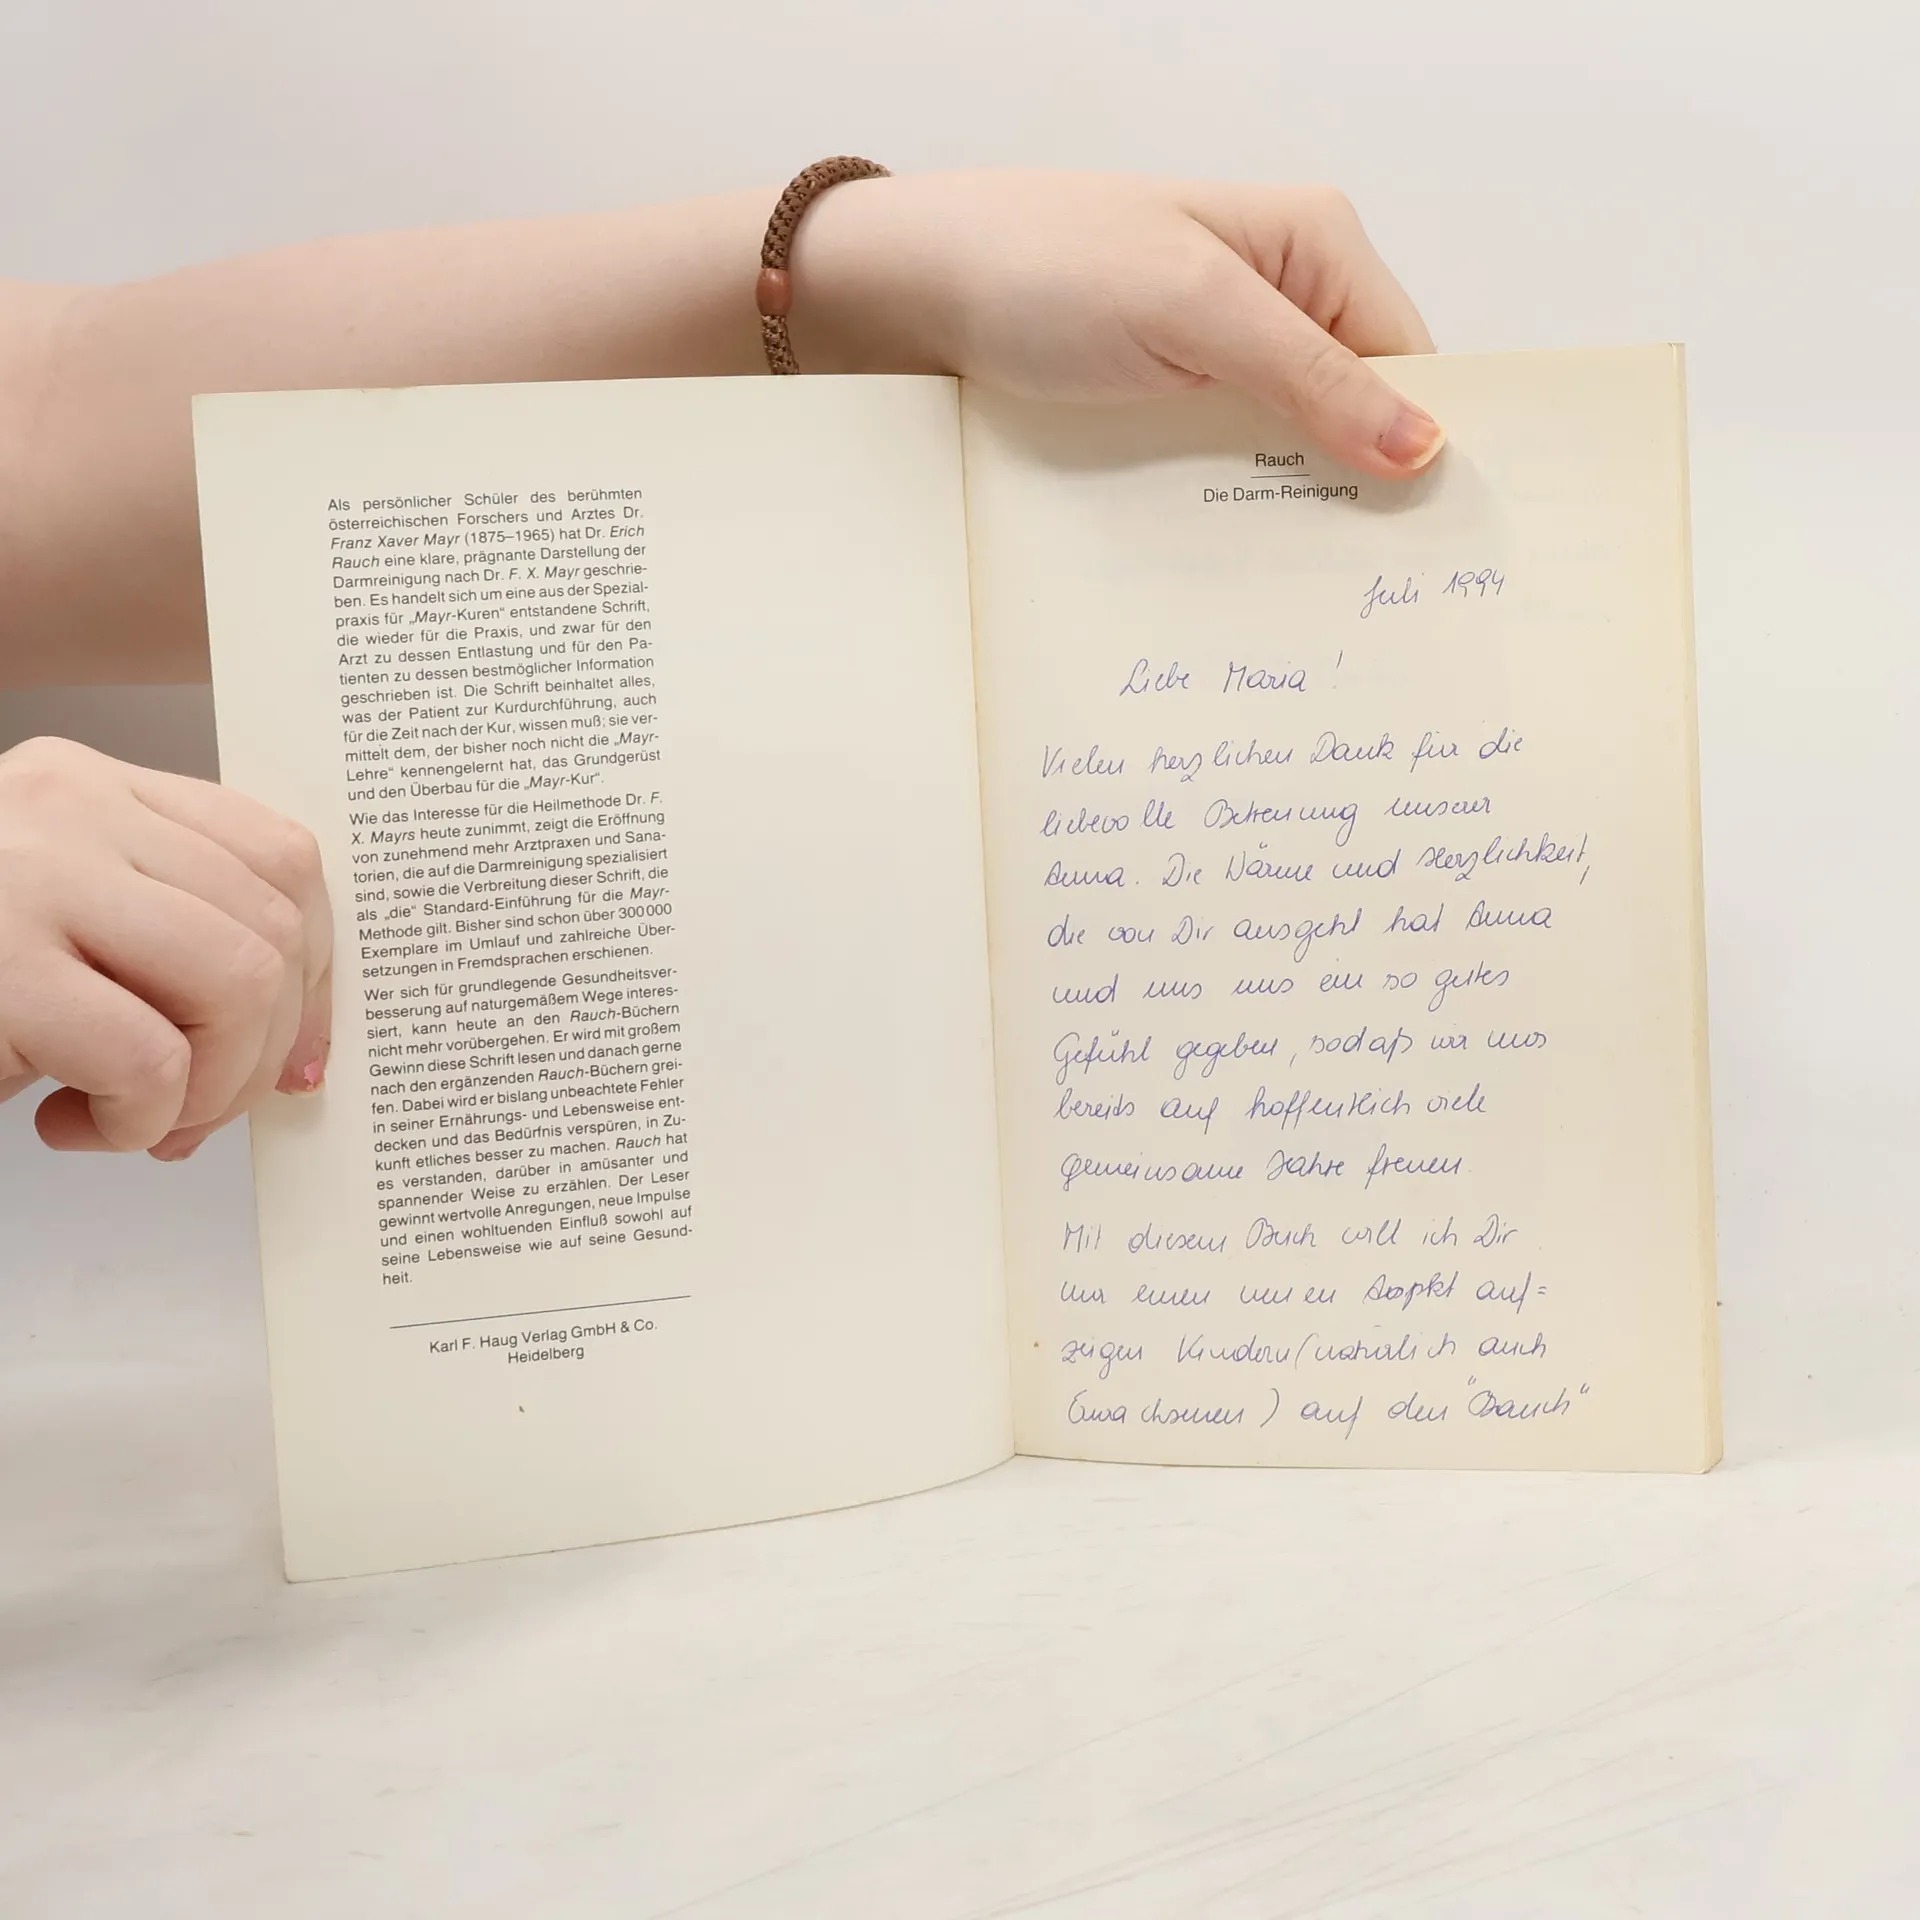 Als persönlicher Schüler des berühmten
österreichischen Forschers und Arztes Dr.
Franz Xaver Mayr (1875–1965) hat Dr. Erich
Rauch eine klare, prägnante Darstellung der
Darmreinigung nach Dr. F. X. Mayr geschrie-
ben. Es handelt sich um eine aus der Spezial-
praxis für „Mayr-Kuren“ entstandene Schrift,
die wieder für die Praxis, und zwar für den
Arzt zu dessen Entlastung und für den Pa-
tienten zu dessen bestmöglicher Information
geschrieben ist. Die Schrift beinhaltet alles,
was der Patient zur Kurdurchführung, auch
für die Zeit nach der Kur, wissen muß; sie ver-
mittelt dem, der bisher noch nicht die „Mayr-
Lehre“ kennengelernt hat, das Grundgerüst
und den Überbau für die „Mayr-Kur“.
Wie das Interesse für die Heilmethode Dr. F.
X. Mayrs heute zunimmt, zeigt die Eröffnung
von zunehmend mehr Arztpraxen und Sana-
torien, die auf die Darmreinigung spezialisiert
sind, sowie die Verbreitung dieser Schrift, die
als „die“ Standard-Einführung für die Mayr-
Methode gilt. Bisher sind schon über 300000
Exemplare im Umlauf und zahlreiche Über-
setzungen in Fremdsprachen erschienen.
Wer sich für grundlegende Gesundheitsver-
besserung auf naturgemäßem Wege interes-
siert, kann heute an den Rauch-Büchern
nicht mehr vorübergehen. Er wird mit großem
Gewinn diese Schrift lesen und danach gerne
nach den ergänzenden Rauch-Büchern grei-
fen. Dabei wird er bislang unbeachtete Fehler
in seiner Ernährungs- und Lebensweise ent-
decken und das Bedürfnis verspüren, in Zu-
kunft etliches besser zu machen. Rauch hat
es verstanden, darüber in amüsanter und
spannender Weise zu erzählen. Der Leser
gewinnt wertvolle Anregungen, neue Impulse
und einen wohltuenden Einfluß sowohl auf
seine Lebensweise wie auf seine Gesund-
heit.
Karl F. Haug Verlag GmbH & Co.
Heidelberg
Rauch
Die Darm-Reinigung
Juli 1994
Liebe Maria !
Vielen herzlichen Dank für die
liebevolle Betreuung unserer
Anna. Die Wärme und Herzlichkeit,
die von Dir ausgeht hat Anna
und uns uns ein so gutes
Gefühl gegeben, sodaß wir uns
bereits auf hoffentlich viele
gemeinsame Jahre freuen.
Mit diesem Buch will ich Dir
nur einen neuen Aspekt auf=
zeigen Kindern (natürlich auch
Erwachsenen) auf den "Bauch"